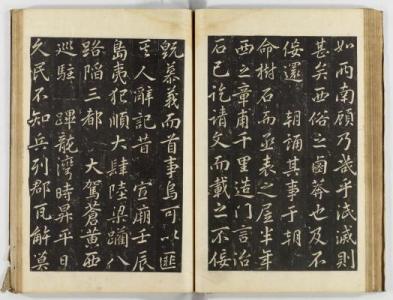 如而南顧乃裁乎泯滅則
甚矣西俗之鹵莽也及不
佞還 朝誦其事于朝
命樹石而丞表之居半年
西之章甫千里造門言治
石已訖請文而載之不佞
既慕義而首事烏可以匪
其人辭記昔 宣廟壬辰
島夷犯順大肆陸梁躪八
路陷三都 大駕蒼黃西
巡駐 蹕龍灣時昇平日
久民不知兵列郡瓦解莫